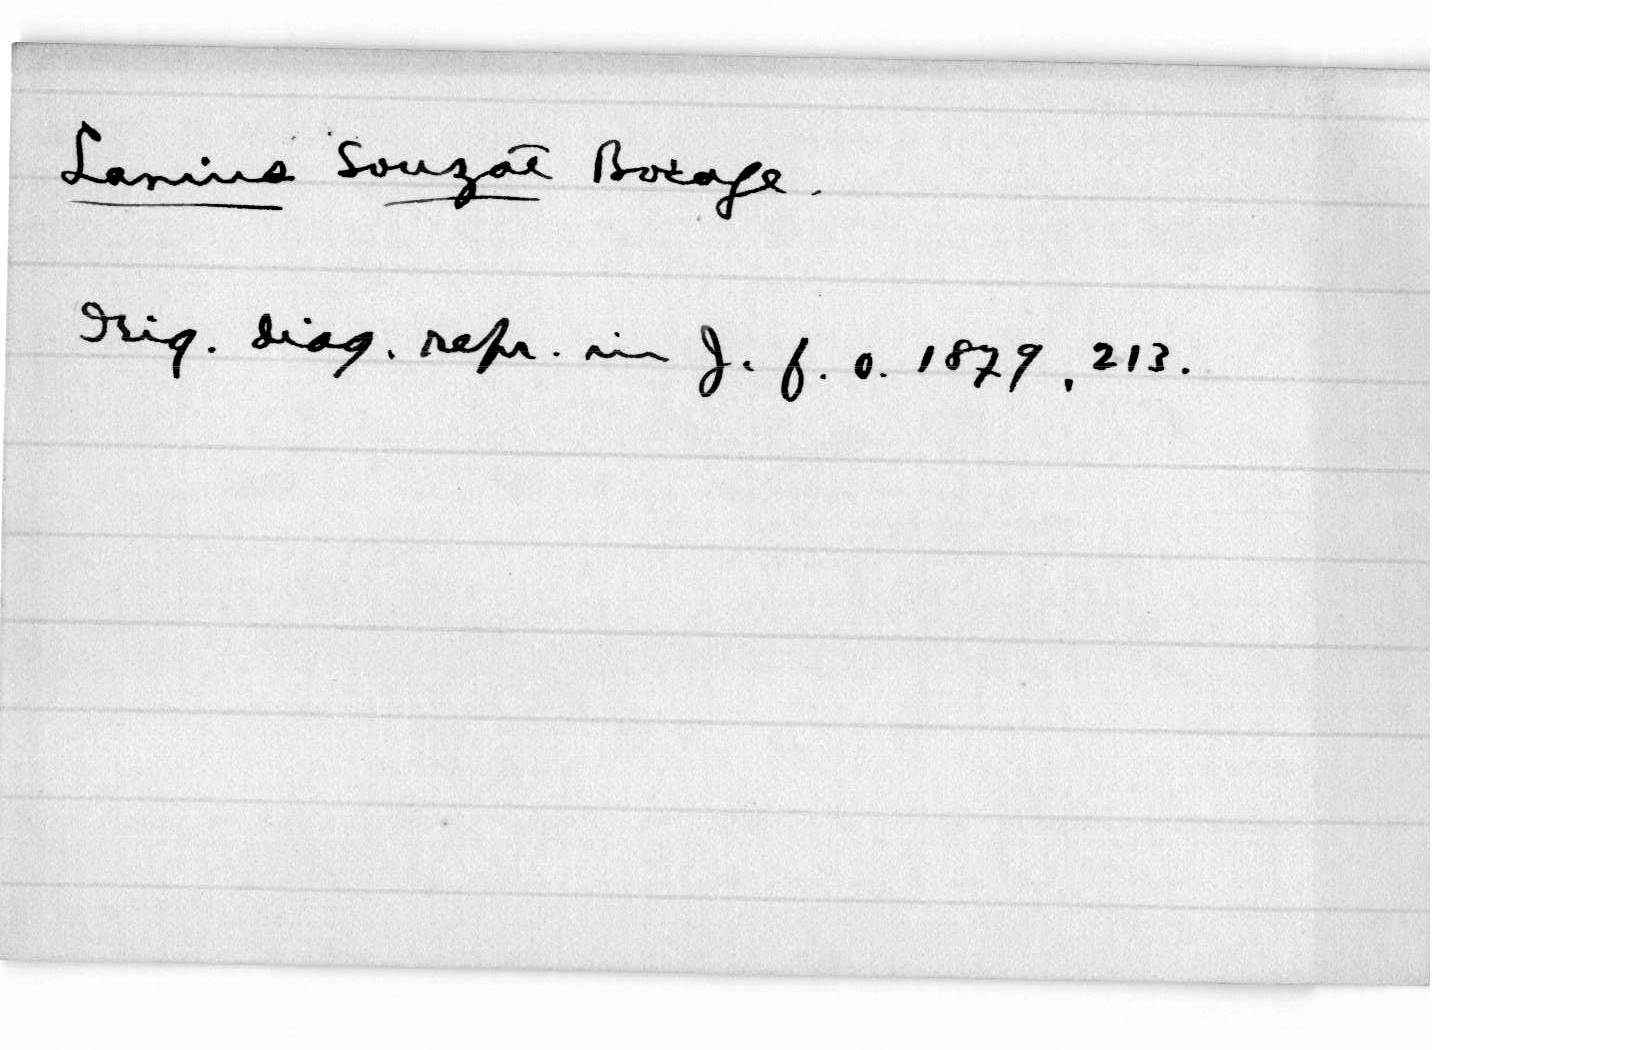 Lanius Souzae Bocage.
Orig. diag. repr. in J. f. O. 1879, 213.